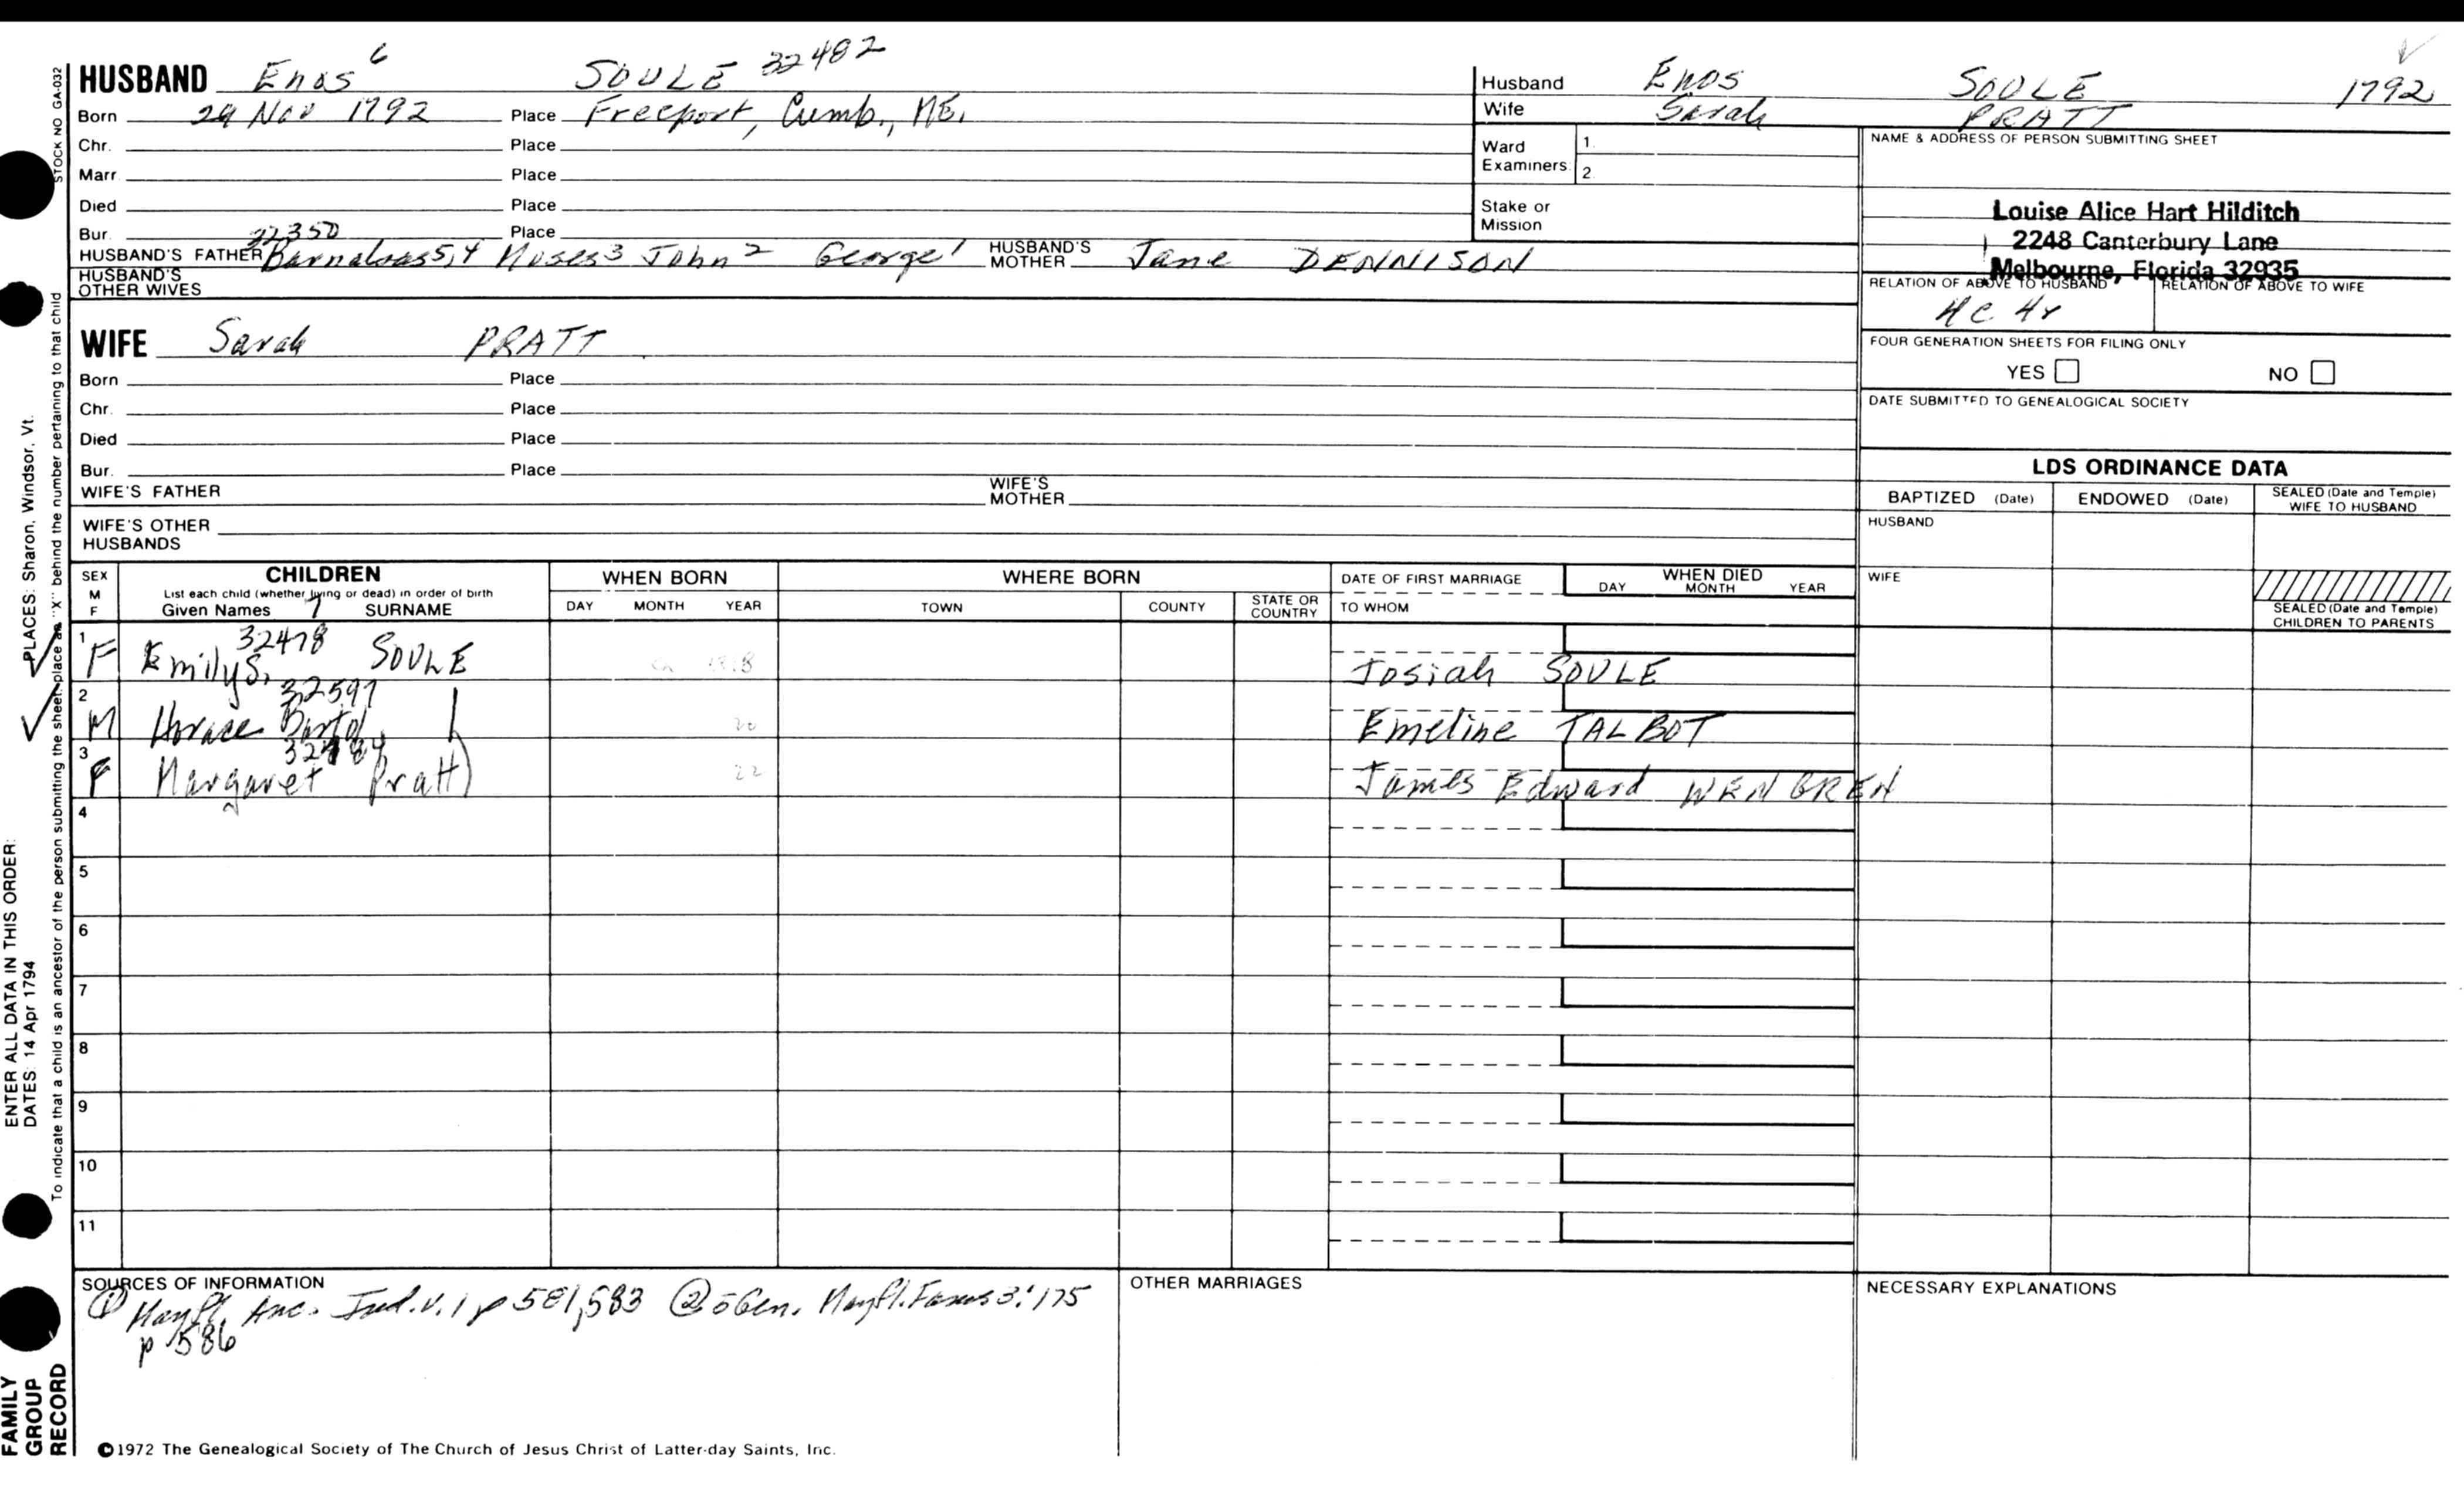 HUSBAND Enos 6 SOULE 32482
Born 29 Nov 1792 Place Freeport, Cumb., ME.
Chr. Place
Marr. Place
Died Place
Bur. Place
32350
HUSBAND'S FATHER Barnabas 5,4 Moses 3 John 2 George 1 HUSBAND'S MOTHER Jane DENNISON
HUSBAND'S OTHER WIVES
WIFE Sarah PRATT
Born Place
Chr. Place
Died Place
Bur. Place
WIFE'S FATHER WIFE'S MOTHER
WIFE'S OTHER HUSBANDS
Husband Enos SOULE 1792
Wife Sarah PRATT
Ward Examiners: 1. 2.
Stake or Mission
NAME & ADDRESS OF PERSON SUBMITTING SHEET
Louise Alice Hart Hilditch
2248 Canterbury Lane
Melbourne, Florida 32935
RELATION OF ABOVE TO HUSBAND RELATION OF ABOVE TO WIFE
4C 4r
FOUR GENERATION SHEETS FOR FILING ONLY
YES NO
DATE SUBMITTED TO GENEALOGICAL SOCIETY
LDS ORDINANCE DATA
BAPTIZED (Date) ENDOWED (Date) SEALED (Date and Temple) WIFE TO HUSBAND
HUSBAND
WIFE
SEALED (Date and Temple) CHILDREN TO PARENTS
SEX M F
CHILDREN
List each child (whether living or dead) in order of birth
Given Names 7 SURNAME
WHEN BORN DAY MONTH YEAR
WHERE BORN TOWN COUNTY STATE OR COUNTRY
DATE OF FIRST MARRIAGE
TO WHOM
WHEN DIED DAY MONTH YEAR
32478
1 F Emily S. SOULE ca Josiah SOULE
32597
2 M Horace Bartol 20 Emeline TALBOT
3 F Margaret Pratt 22 James Edward WENGREN
4
5
6
7
8
9
10
11
SOURCES OF INFORMATION
① Mayfl. Anc. Ind. v. 1 p 581,583 ② 5 Gen. Mayfl. Fams 3:175
p 586
OTHER MARRIAGES
NECESSARY EXPLANATIONS
©1972 The Genealogical Society of The Church of Jesus Christ of Latter-day Saints, Inc.
STOCK NO GA-032
To indicate that a child is an ancestor of the person submitting the sheet, place an "X" behind the number pertaining to that child
ENTER ALL DATA IN THIS ORDER:
DATES: 14 Apr 1794 PLACES: Sharon, Windsor, Vt.
FAMILY
GROUP
RECORD